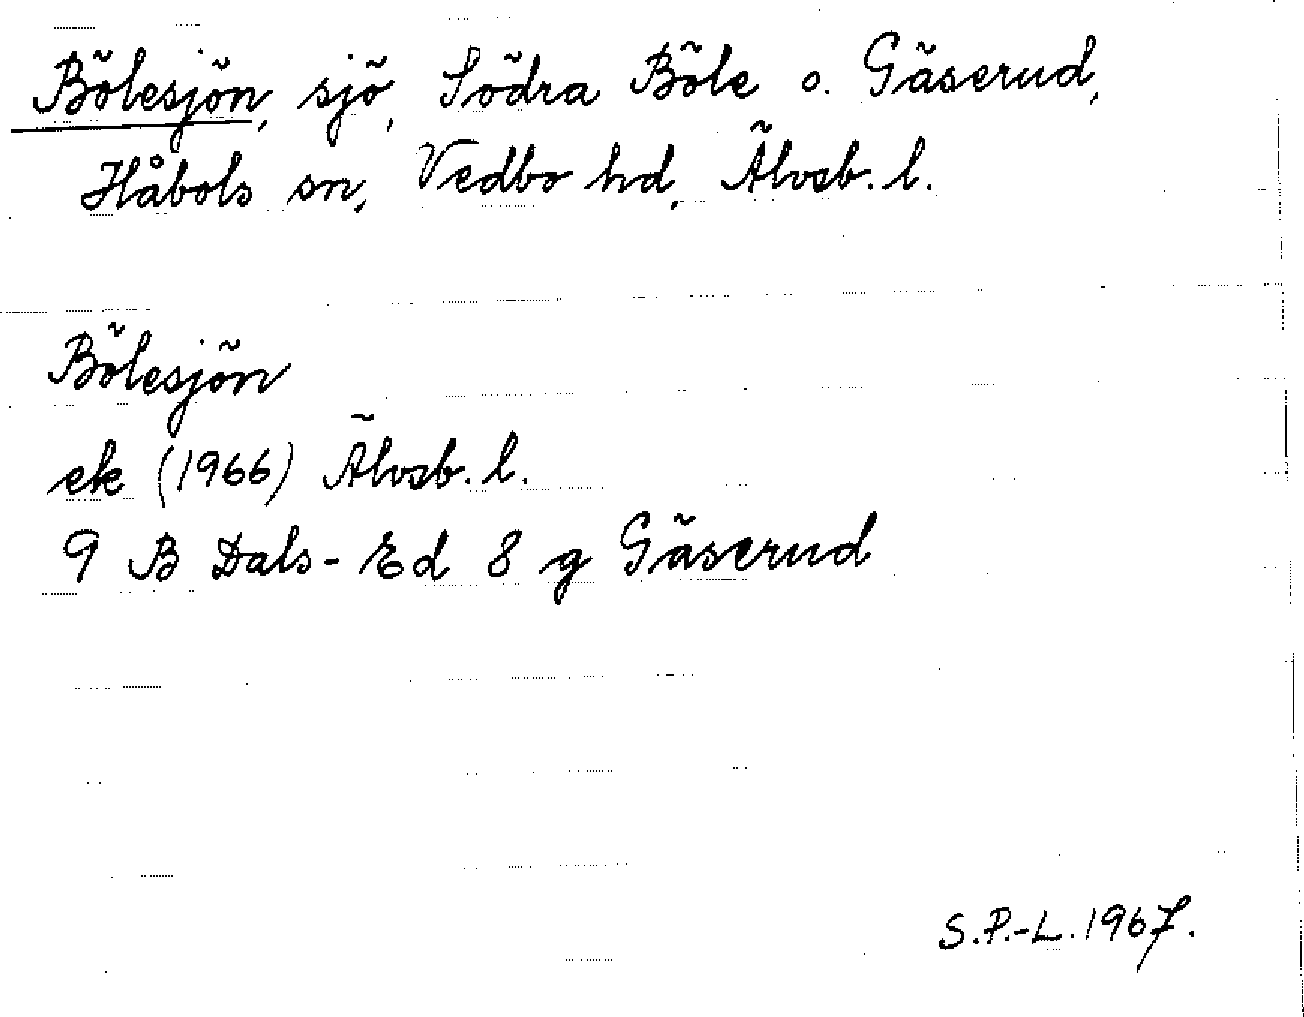 Bölesjön, sjö, Södra Böle o. Gäserud,
Håbols sn, Vedbo hd, Älvsb. l.
Bölesjön
ek (1966) Älvsb. l.
9 B Dals-Ed 8 g Gäserud
S.P.-L. 1967.